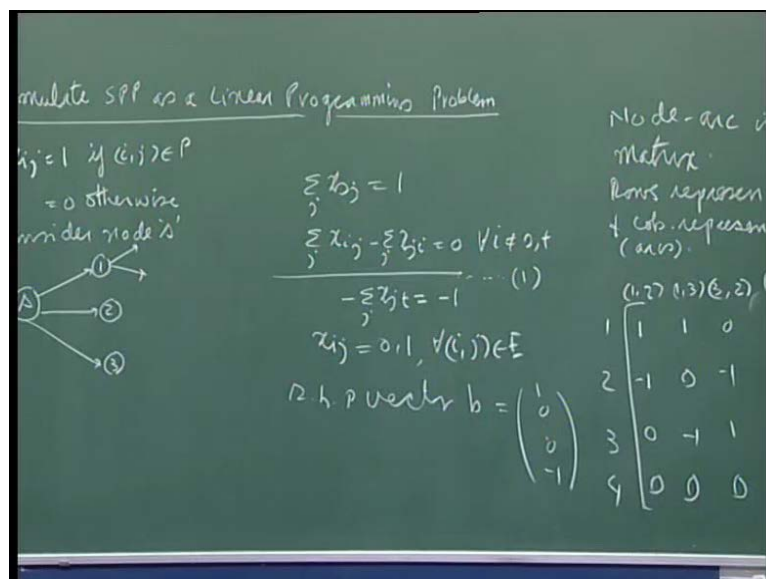 mulate SPP as a Linear Programming Problem
xij = 1 if (i,j) ∈ P
= 0 otherwise
nsider node 's'
s
1
2
3
∑j xsj = 1
∑j xij - ∑j xji = 0 ∀ i ≠ s, t
---- (1)
-∑j xjt = -1
xij = 0, 1, ∀(i,j) ∈ E
r.h.s vector b = (1 0 0 -1)
Node-arc i
matrix.
Rows represen
& cols. represen
(arcs).
(1,2) (1,3) (3,2)
1 1 1 0
2 -1 0 -1
3 0 -1 1
4 0 0 0